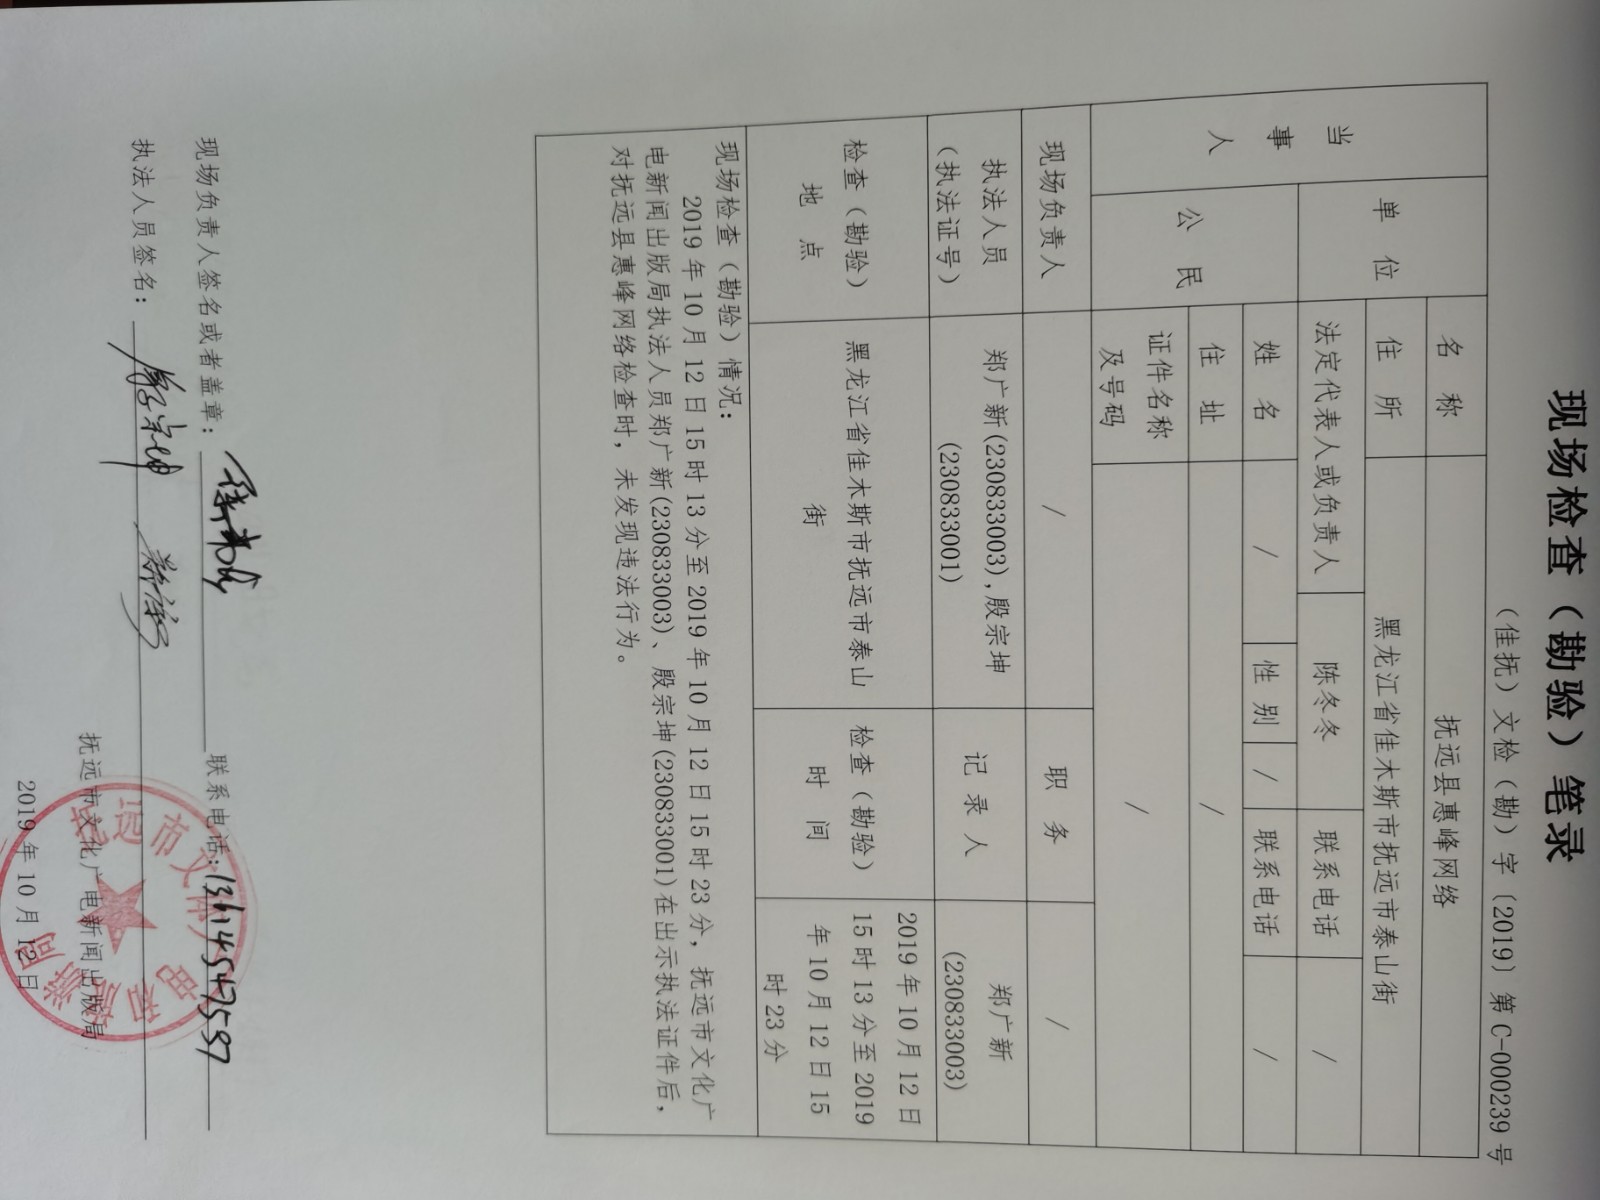 现场检查（勘验）笔录
（佳抚）文检（勘）字〔2019〕第 C-000239 号
当事人
单 位
名 称
抚远县惠峰网络
住 所
黑龙江省佳木斯市抚远市泰山街
法定代表人或负责人
陈冬冬
联系电话
/
公 民
姓 名
/
性 别
/
联系电话
/
住 址
/
证件名称
及号码
/
现场负责人
/
职 务
/
执法人员
（执法证号）
郑广新(230833003),殷宗坤
(230833001)
记 录 人
郑广新
(230833003)
检查（勘验）
地 点
黑龙江省佳木斯市抚远市泰山
街
检查（勘验）
时 间
2019 年 10 月 12 日
15 时 13 分至 2019
年 10 月 12 日 15
时 23 分
现场检查（勘验）情况：
2019 年 10 月 12 日 15 时 13 分至 2019 年 10 月 12 日 15 时 23 分，抚远市文化广
电新闻出版局执法人员郑广新(230833003)、殷宗坤(230833001)在出示执法证件后，
对抚远县惠峰网络检查时，未发现违法行为。
现场负责人签名或者盖章：
联系电话：
执法人员签名：
殷宗坤
抚远市文化广电新闻出版局
2019 年 10 月 12 日